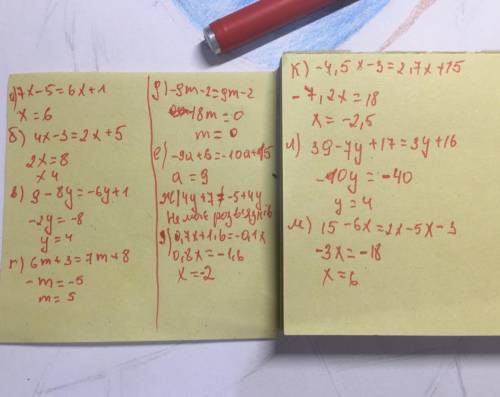 а) 7x-5=6x+1
x=6
б) 4x-3=2x+5
2x=8
x 4
в) 9-8y=-6y+1
-2y=-8
y=4
г) 6m+3=7m+8
-m=-5
m=5
g) -9m-2=9m-2
-18m=0
m=0
е) -9a+6=-10a+15
a=9
ж) 4y+7≠-5+4y
Не має розвязків
g) 0,7x+1,6=-0,1x
0,8x=-1,6
x=-2
к) -4,5x-3=2,7x+15
-7,2x=18
x=-2,5
л) 39-7y+17=3y+16
-10y=-40
y=4
м) 15-6x=2x-5x-3
-3x=-18
x=6